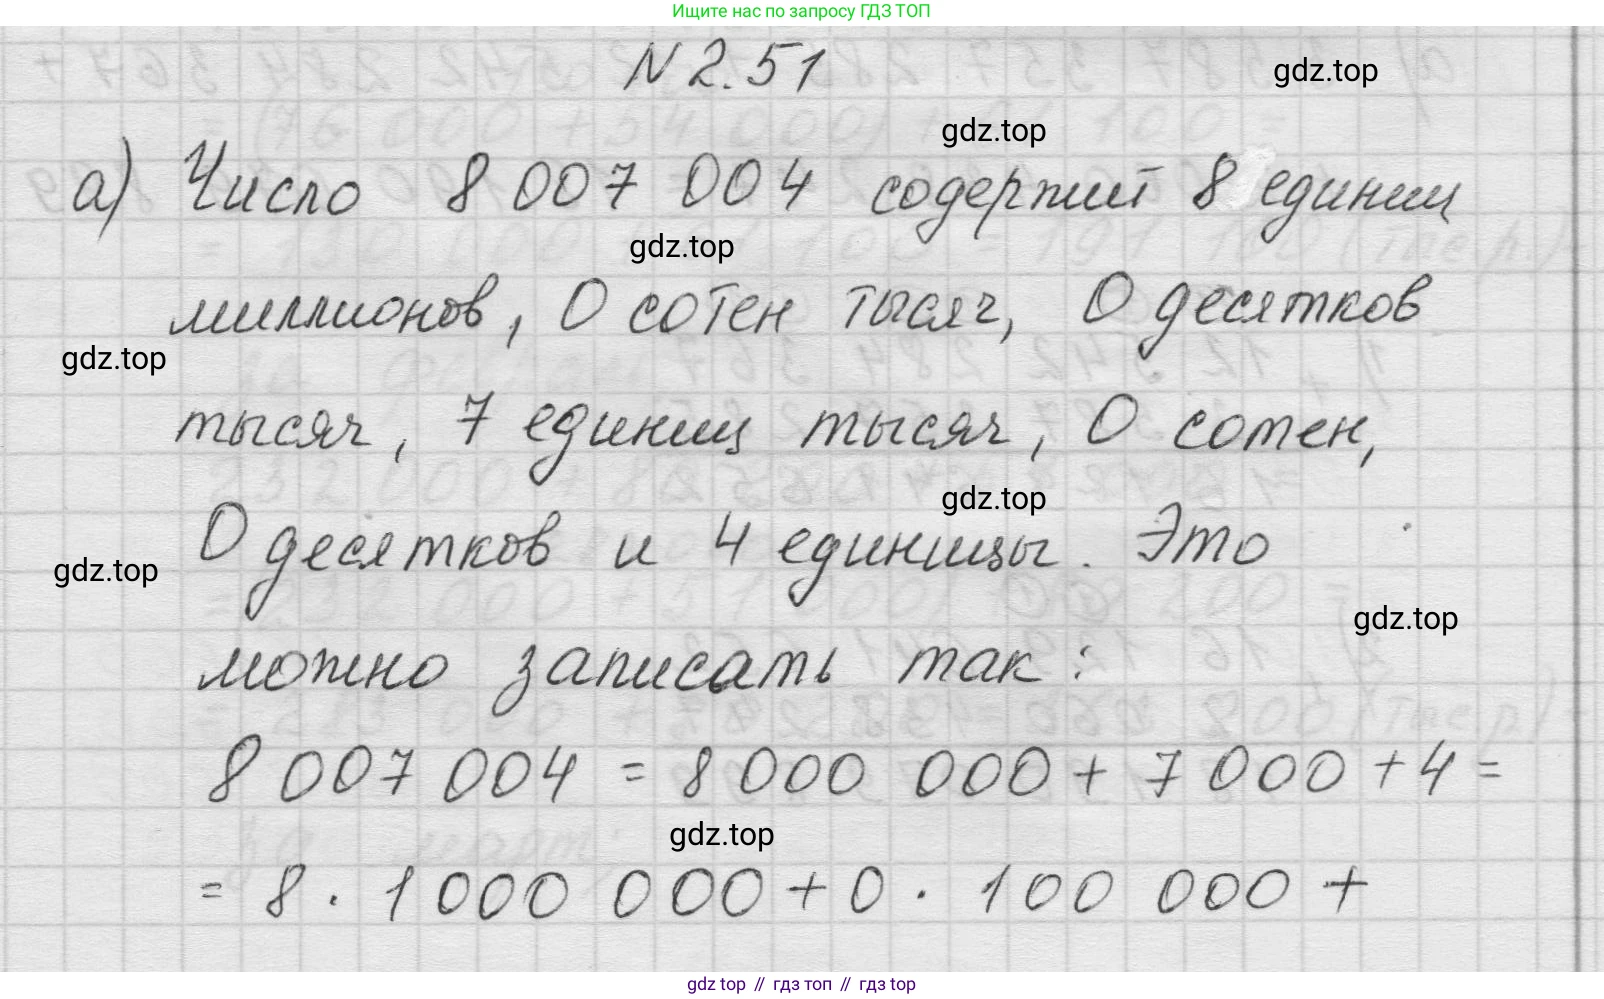 Ищите нас по запросу ГДЗ ТОП
N 2.51
gdz.top
gdz.top
а) Число 8 007 004 содержит 8 единиц
gdz.top
миллионов, 0 сотен тысяч, 0 десятков
gdz.top
тысяч, 7 единиц тысяч, 0 сотен,
gdz.top
0 десятков и 4 единицы. Это
gdz.top
gdz.top
можно записать так:
8 007 004 = 8 000 000 + 7 000 + 4 =
gdz.top
= 8 · 1 000 000 + 0 · 100 000 +
gdz top // гдз топ // гдз top